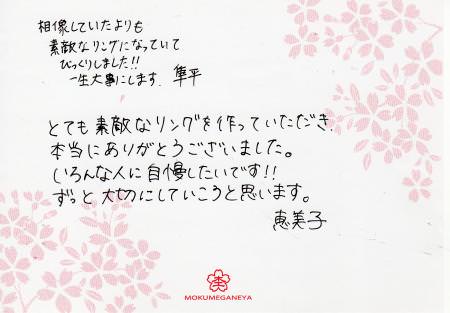 想像していたよりも
素敵なリングになっていて
びっくりしました!!
一生大事にします。隼平
とても素敵なリングを作っていただき、
本当にありがとうございました。
いろんな人に自慢したいです!!
ずっと大切にしていこうと思います。
恵美子
MOKUMEGANEYA